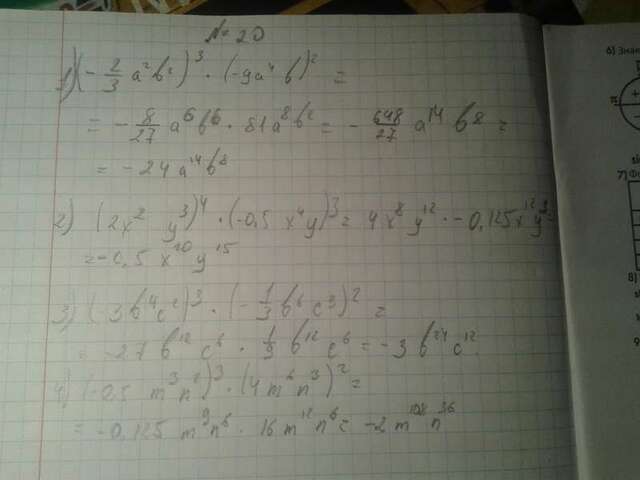 № 20
1) (-2/3 a²b²)³ · (-9a⁴b)² =
= -8/27 a⁶b⁶ · 81a⁸b² = -648/27 a¹⁴b⁸ =
= -24a¹⁴b⁸
2) (2x² y³)⁴ · (-0,5 x⁴y)³ = 4x⁸y¹² · -0,125x¹²y³ =
= -0,5 x²⁰ y¹⁵
3) (-3b⁴c²)³ · (-1/3 b⁶c³)² =
= -27b¹² c⁶ · 1/9 b¹² c⁶ = -3 b²⁴c¹²
4) (-0,5 m³n²)³ · (4m⁶n³)² =
= -0,125 m⁹n⁶ · 16m¹²n⁶ = -2m¹⁰⁸n³⁶
6) Зна
7)
8)
9